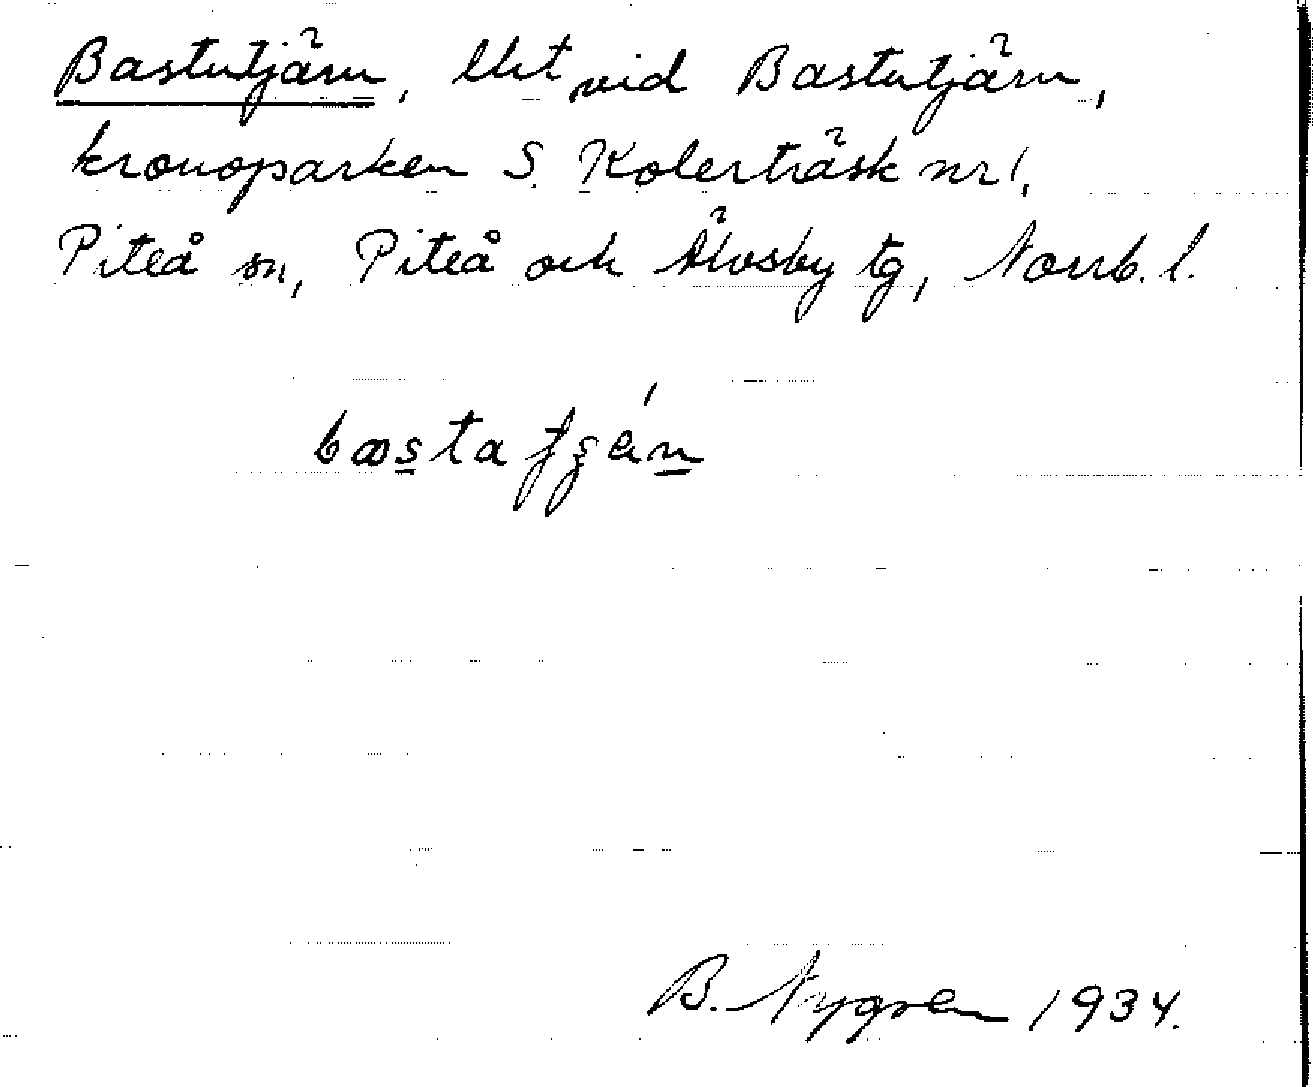 Bastutjärn, llit vid Bastutjärn,
kronoparken S. Kolerträsk nr 1,
Piteå sn, Piteå och Älvsby tg, Norrb. l.
B. Nygren 1934.